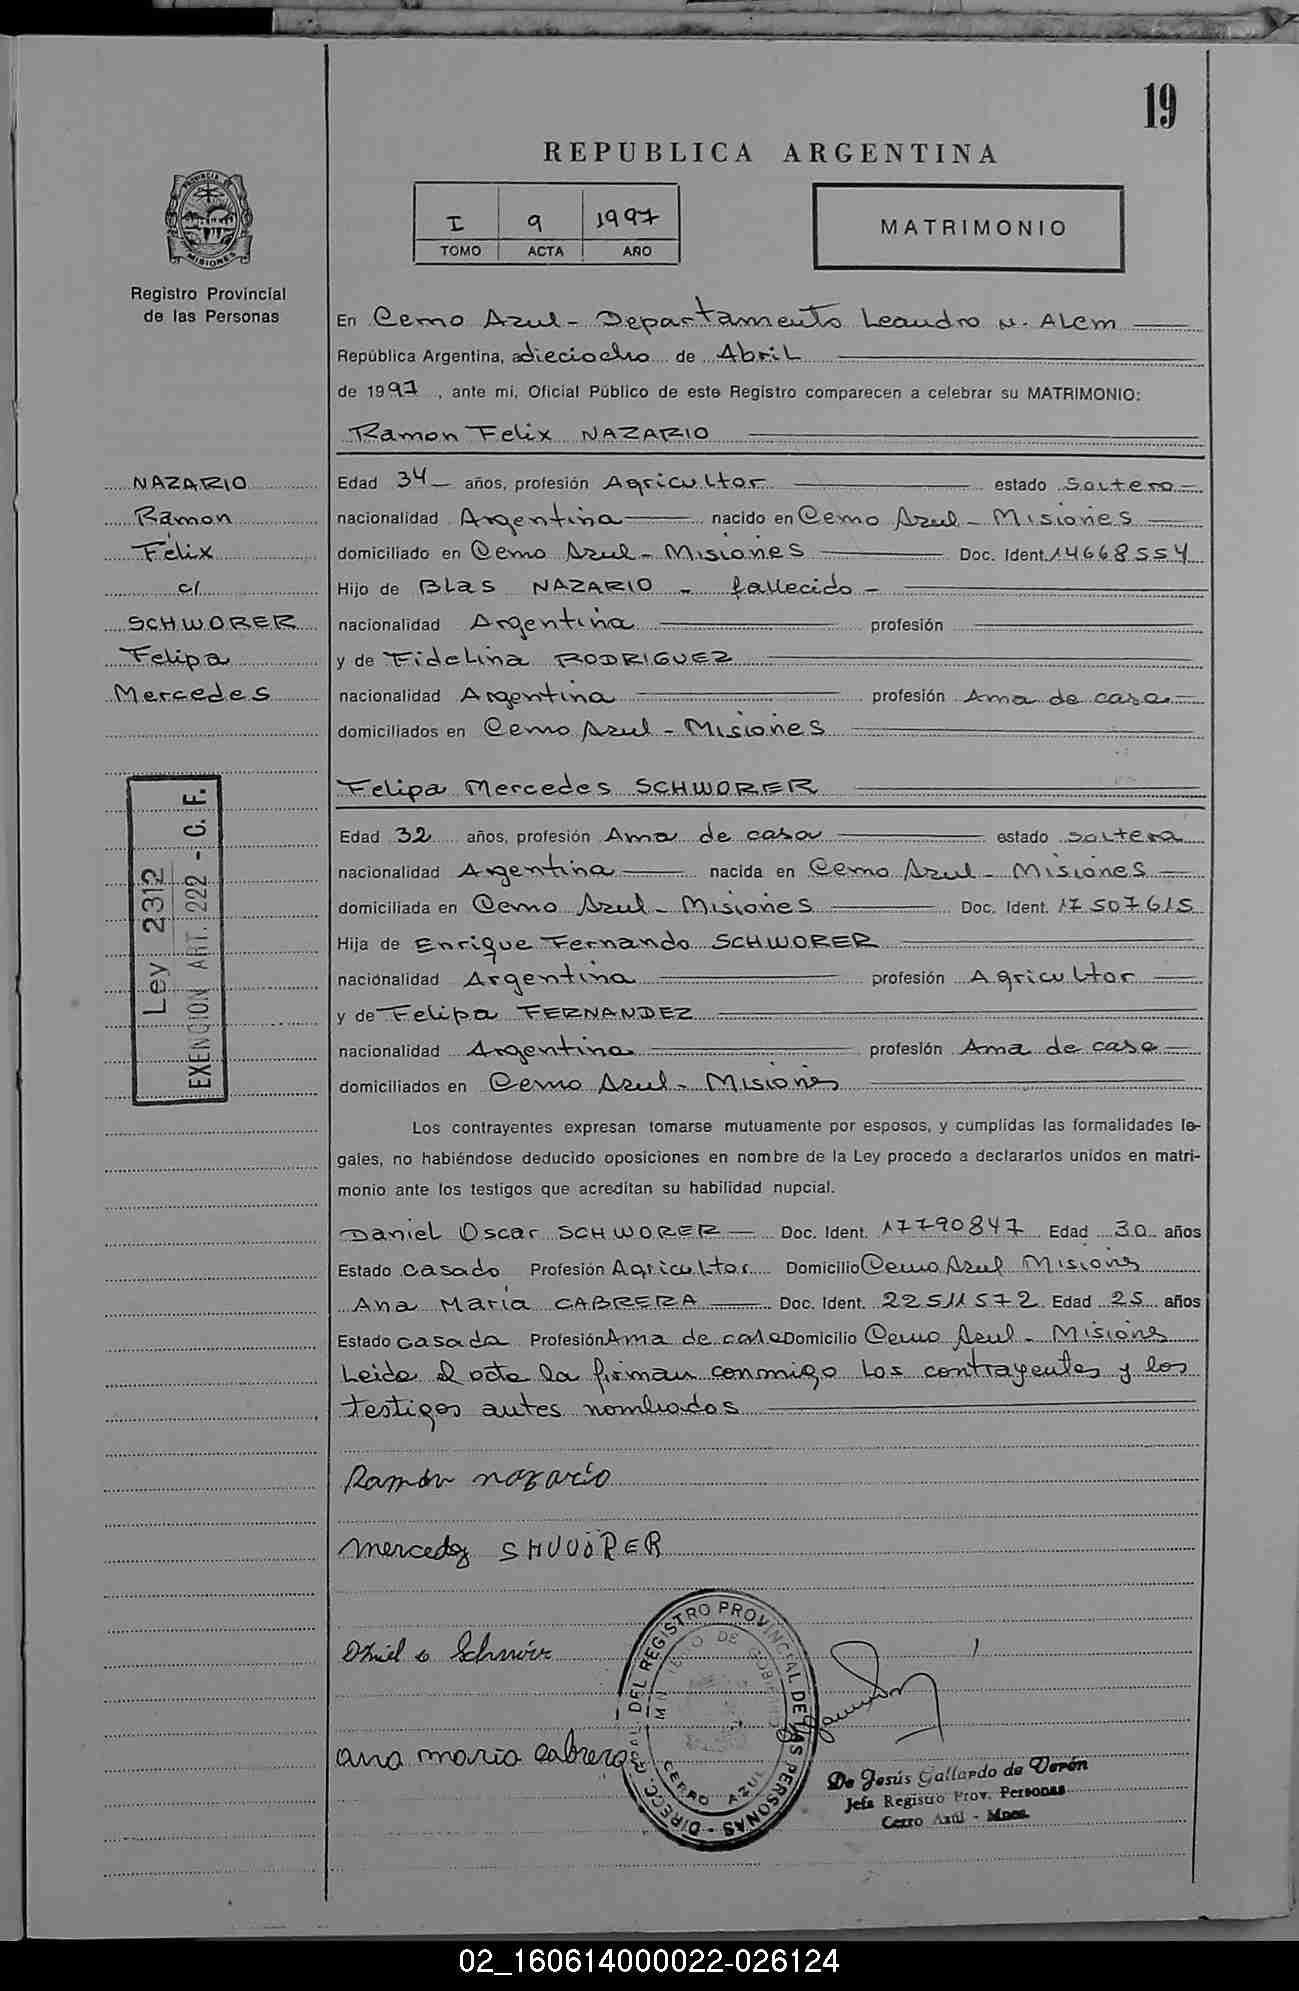 19
REPUBLICA ARGENTINA
I 9 1997
TOMO ACTA AÑO
MATRIMONIO
PROVINCIA DE
MISIONES
Registro Provincial
de las Personas
En Cerro Azul - Departamento Leandro N. Alem
República Argentina, a dieciocho de Abril
de 1997, ante mi, Oficial Público de este Registro comparecen a celebrar su MATRIMONIO:
Ramon Felix NAZARIO
NAZARIO
Ramon
Félix
c/
SCHWORER
Felipa
Mercedes
Edad 34 años, profesión Agricultor estado Soltero
nacionalidad Argentina nacido en Cerro Azul - Misiones
domiciliado en Cerro Azul - Misiones Doc. Ident. 14668554
Hijo de Blas NAZARIO - fallecido -
nacionalidad Argentina profesión
y de Fidelina RODRIGUEZ
nacionalidad Argentina profesión Ama de casa
domiciliados en Cerro Azul - Misiones
Felipa Mercedes SCHWORER
Ley 2312
EXENCION ART. 222 - C. F.
Edad 32 años, profesión Ama de casa estado soltera
nacionalidad Argentina nacida en Cerro Azul - Misiones
domiciliada en Cerro Azul - Misiones Doc. Ident. 17507615
Hija de Enrique Fernando SCHWORER
nacionalidad Argentina profesión Agricultor
y de Felipa FERNANDEZ
nacionalidad Argentina profesión Ama de casa
domiciliados en Cerro Azul - Misiones
Los contrayentes expresan tomarse mutuamente por esposos, y cumplidas las formalidades le-
gales, no habiéndose deducido oposiciones en nombre de la Ley procedo a declararlos unidos en matri-
monio ante los testigos que acreditan su habilidad nupcial.
Daniel Oscar SCHWORER Doc. Ident. 17790847 Edad 30 años
Estado casado Profesión Agricultor Domicilio Cerro Azul Misiones
Ana María CABRERA Doc. Ident. 22511572 Edad 25 años
Estado casada Profesión Ama de casa Domicilio Cerro Azul - Misiones
Leida el acta la firman conmigo los contrayentes y los
testigos antes nombrados
Ramón nazario
mercedes SHUUÖRER
ana maria cabrera
DIRECC. GRAL. DEL REGISTRO PROVINCIAL DE LAS PERSONAS -
MINISTERIO DE GOBIERNO
CERRO AZUL
De Jesús Gallardo de Verón
Jefa Registro Prov. Personas
Cerro Azul - Mnes.
02_160614000022-026124